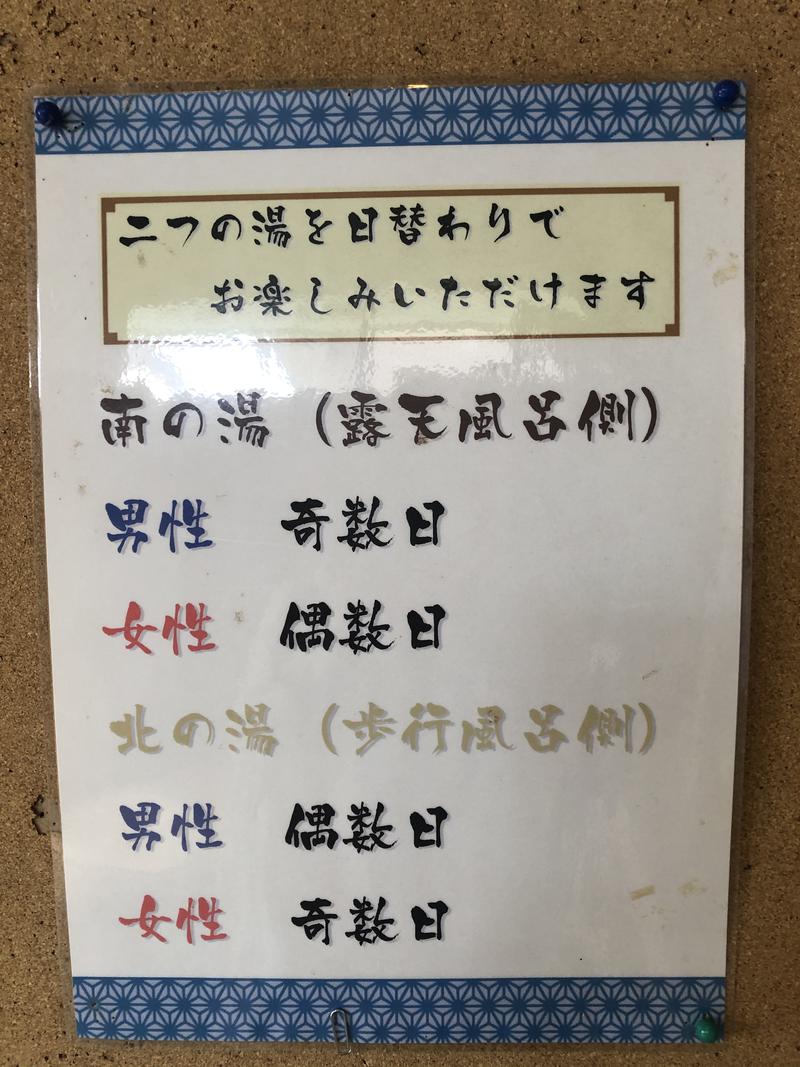 二つの湯を日替わりで
お楽しみいただけます
南の湯（露天風呂側）
男性　奇数日
女性　偶数日
北の湯（歩行風呂側）
男性　偶数日
女性　奇数日